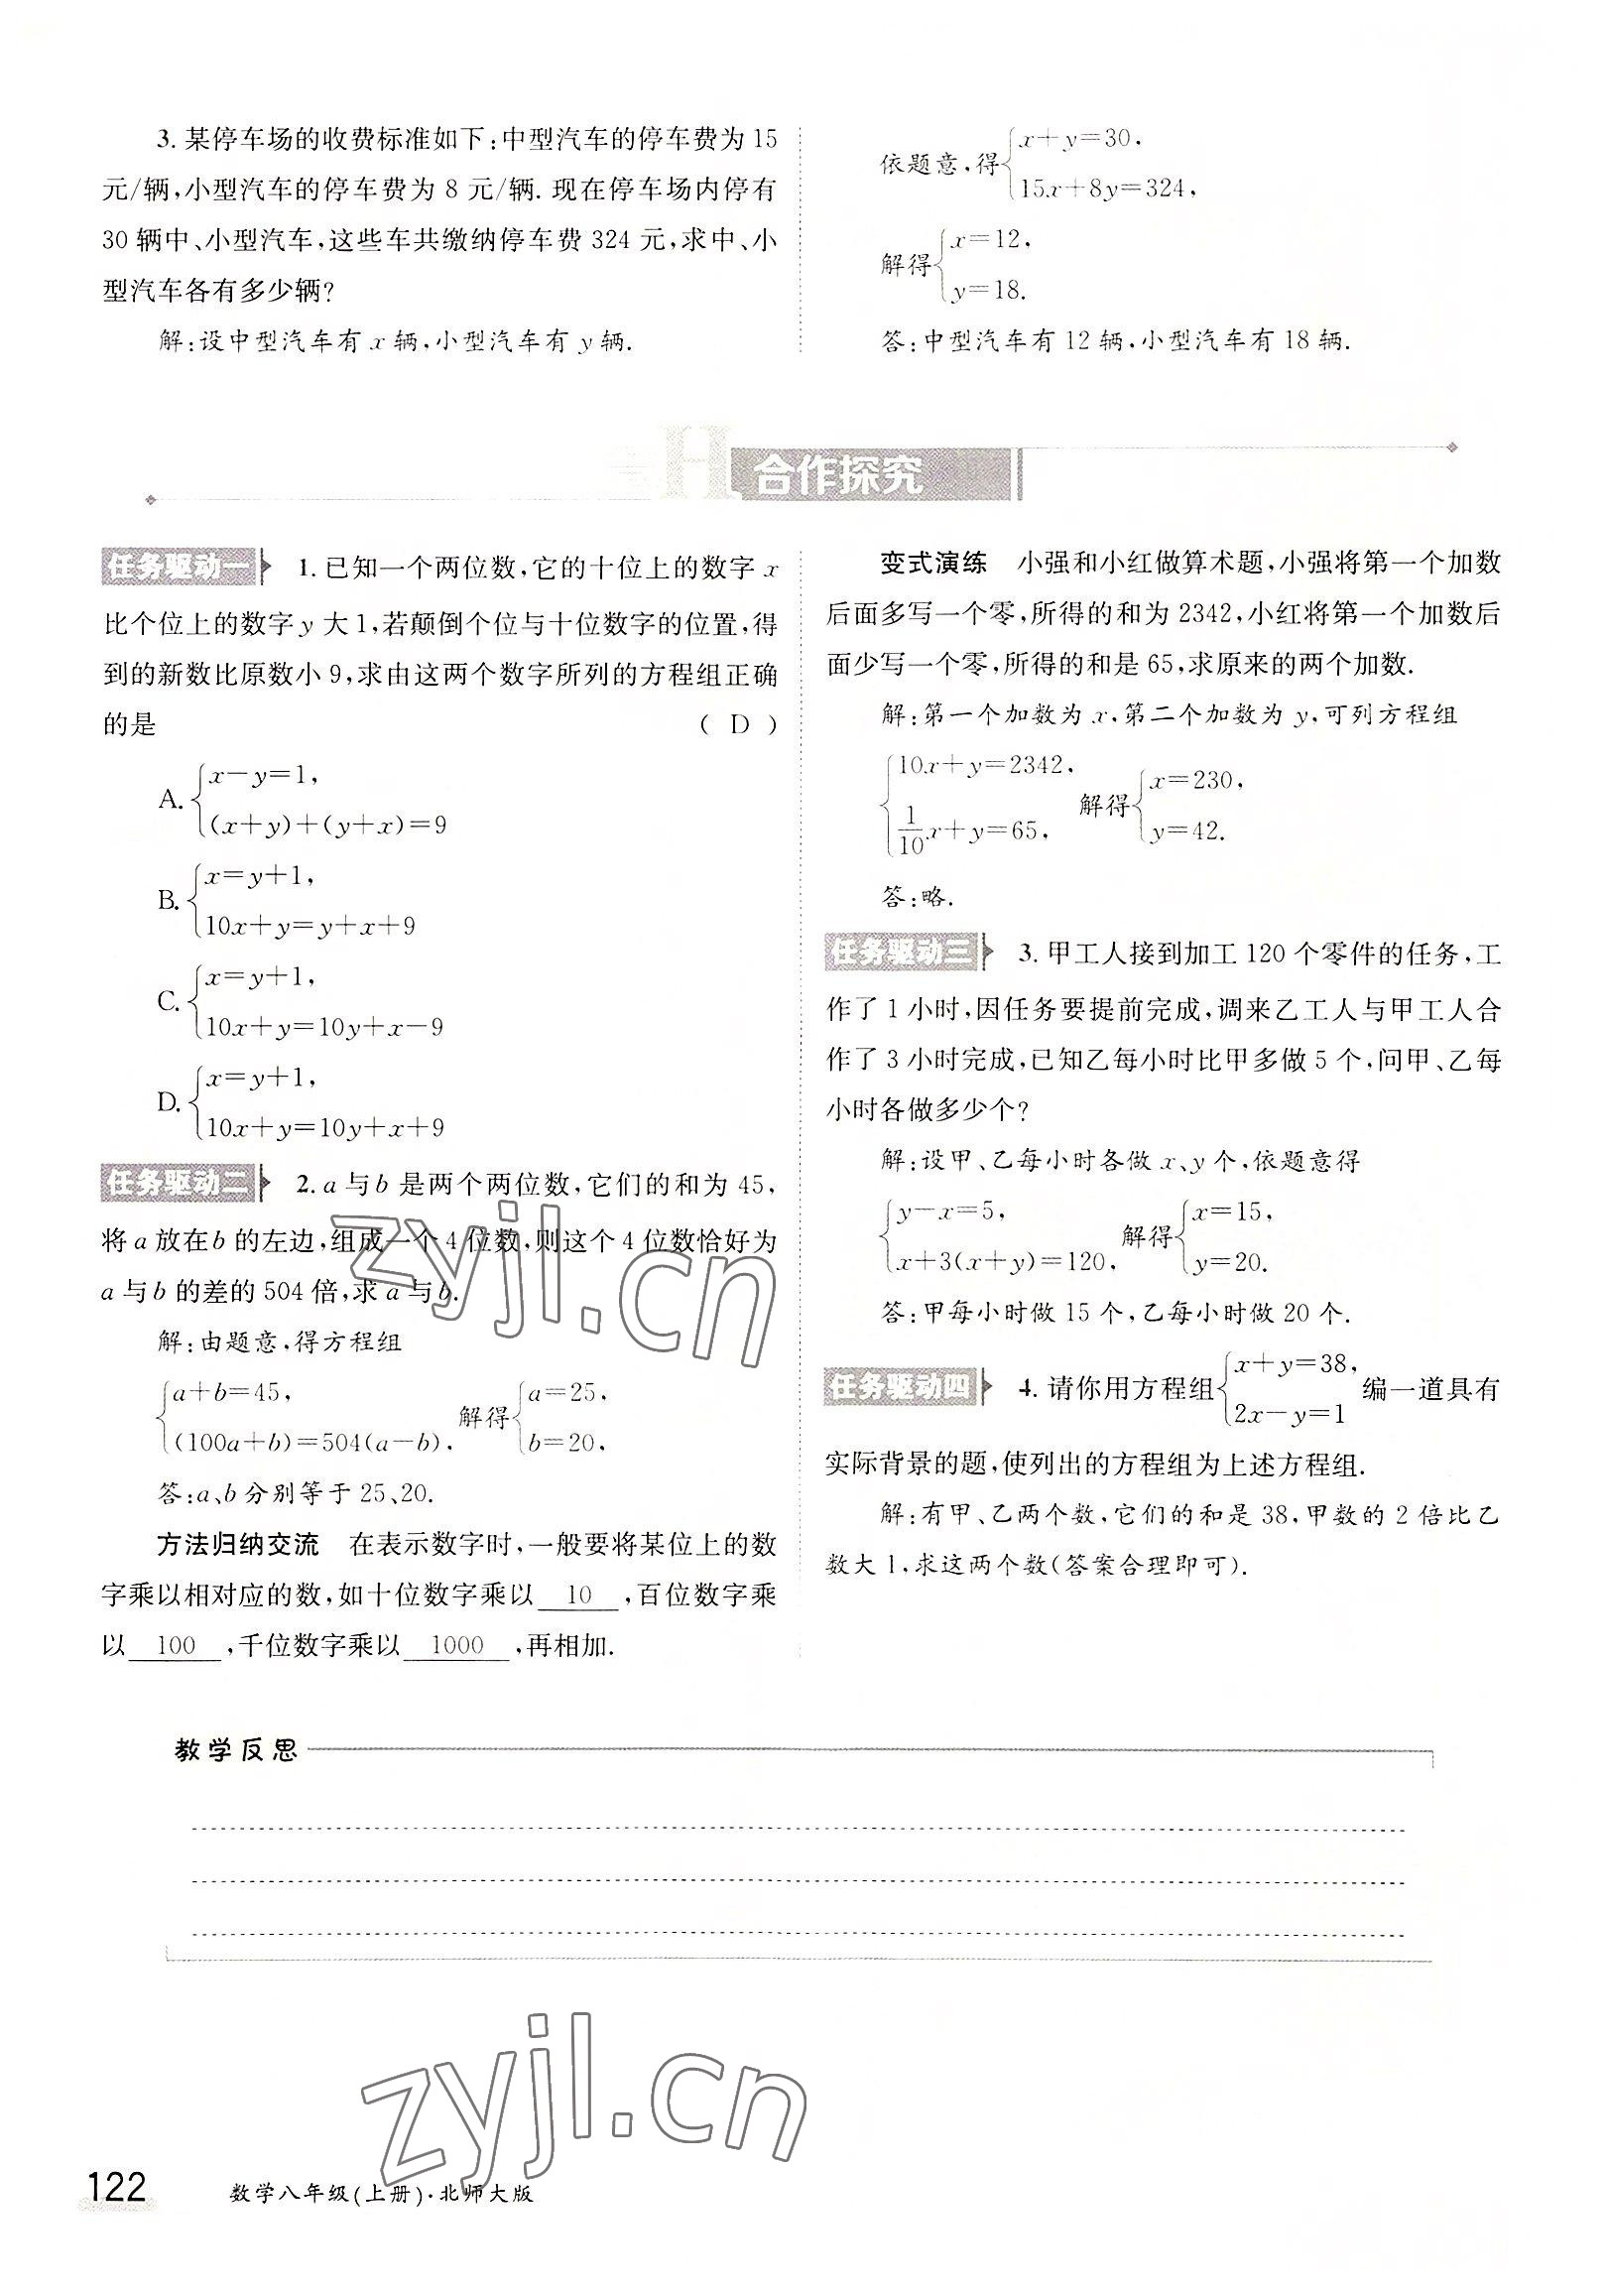 3. 某停车场的收费标准如下:中型汽车的停车费为 15
元/辆,小型汽车的停车费为 8 元/辆. 现在停车场内停有
30 辆中、小型汽车,这些车共缴纳停车费 324 元,求中、小
型汽车各有多少辆?
解:设中型汽车有 x 辆,小型汽车有 y 辆.
依题意,得{x+y=30,
15x+8y=324,
解得{x=12,
y=18.
答:中型汽车有 12 辆,小型汽车有 18 辆.
H 合作探究
任务驱动一 1. 已知一个两位数,它的十位上的数字 x
比个位上的数字 y 大 1,若颠倒个位与十位数字的位置,得
到的新数比原数小 9,求由这两个数字所列的方程组正确
的是 ( D )
A. {x-y=1,
(x+y)+(y+x)=9
B. {x=y+1,
10x+y=y+x+9
C. {x=y+1,
10x+y=10y+x-9
D. {x=y+1,
10x+y=10y+x+9
任务驱动二 2. a 与 b 是两个两位数,它们的和为 45,
将 a 放在 b 的左边,组成一个 4 位数,则这个 4 位数恰好为
a 与 b 的差的 504 倍,求 a 与 b.
解:由题意,得方程组
{a+b=45,
(100a+b)=504(a-b), 解得{a=25,
b=20,
答:a、b 分别等于 25、20.
方法归纳交流 在表示数字时,一般要将某位上的数
字乘以相对应的数,如十位数字乘以 10 ,百位数字乘
以 100 ,千位数字乘以 1000 ,再相加.
变式演练 小强和小红做算术题,小强将第一个加数
后面多写一个零,所得的和为 2342,小红将第一个加数后
面少写一个零,所得的和是 65,求原来的两个加数.
解:第一个加数为 x,第二个加数为 y,可列方程组
{10x+y=2342,
1/10x+y=65, 解得{x=230,
y=42.
答:略.
任务驱动三 3. 甲工人接到加工 120 个零件的任务,工
作了 1 小时,因任务要提前完成,调来乙工人与甲工人合
作了 3 小时完成,已知乙每小时比甲多做 5 个,问甲、乙每
小时各做多少个?
解:设甲、乙每小时各做 x、y 个,依题意得
{y-x=5,
x+3(x+y)=120, 解得{x=15,
y=20.
答:甲每小时做 15 个,乙每小时做 20 个.
任务驱动四 4. 请你用方程组{x+y=38,
2x-y=1 编一道具有
实际背景的题,使列出的方程组为上述方程组.
解:有甲、乙两个数,它们的和是 38,甲数的 2 倍比乙
数大 1,求这两个数(答案合理即可).
教学反思
zyjl.cn
zyjl.cn
122 数学八年级(上册)·北师大版